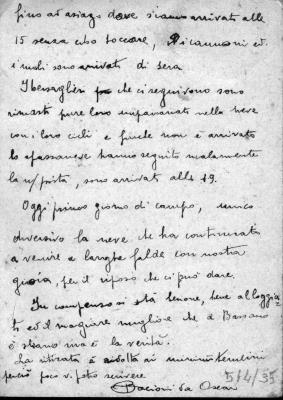 fino ad asiago dove siamo arrivati alle
15 senza cibo toccare, I cannoni ed
i muli sono arrivati di sera
I bersaglieri che ci seguivano sono
rimasti pure loro impantanati nella neve
con i loro cicli e finchè non è arrivato
lo spazzaneve hanno seguito malamente
la n/ pista, sono arrivati alle 19.
Oggi primo giorno di campo, unico
diversivo la neve che ha continuato
a venire a larghe falde con nostra
gioia, per il riposo che ci può dare.
In compenso si sta benone, bene alloggia
ti ed il mangiare migliore che a Bassano
è strano ma è la verità.
La ritirata è ridotta ai minimi termini
perciò poco vi potrò scrivere
Bacioni da Oscar
5/4/35